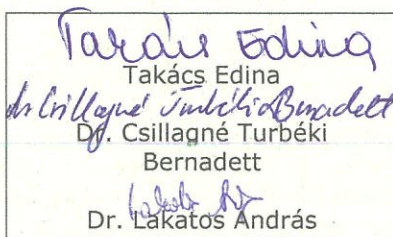 Takács Edina
Takács Edina
dr Csillagné Turbéki Bernadett
Dr. Csillagné Turbéki
Bernadett
Lakatos
Dr. Lakatos András